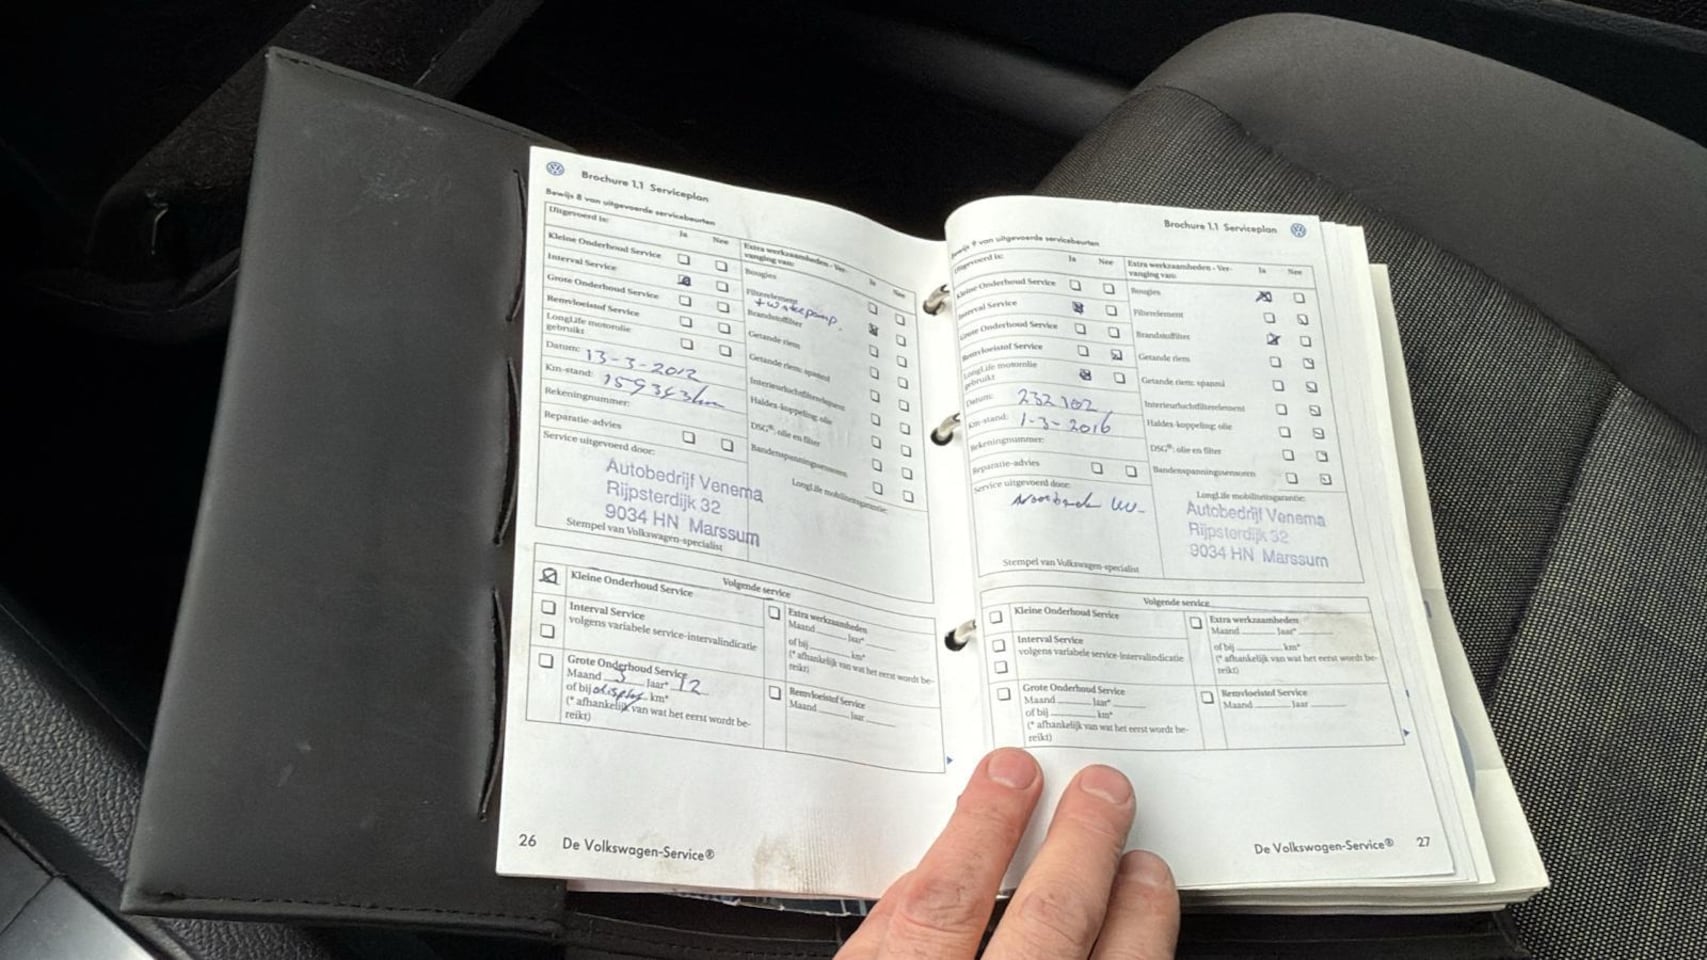 Brochure 1.1 Serviceplan
Bewijs 8 van uitgevoerde servicebeurten
Uitgevoerd is:
Ja Nee
Kleine Onderhoud Service
Interval Service
Grote Onderhoud Service
Remvloeistof Service
LongLife motorolie
gebruikt
Datum: 13-3-2012
Km-stand: 159343km
Rekeningnummer:
Reparatie-advies
Service uitgevoerd door:
Autobedrijf Venema
Rijpsterdijk 32
9034 HN Marssum
Stempel van Volkswagen-specialist
Extra werkzaamheden - Ver-
vanging van:
Ja Nee
Bougies
Filterelement
Brandstoffilter
Getande riem
Getande riem: spanrol
Interieurluchtfilterelement
Haldex-koppeling: olie
DSG®: olie en filter
Bandenspanningssensoren
LongLife mobiliteitsgarantie:
Volgende service
Kleine Onderhoud Service
Interval Service
volgens variabele service-intervalindicatie
Grote Onderhoud Service
Maand 3 Jaar* 12
of bij display km*
(* afhankelijk van wat het eerst wordt be-
reikt)
Extra werkzaamheden
Maand Jaar*
of bij km*
(* afhankelijk van wat het eerst wordt be-
reikt)
Remvloeistof Service
Maand Jaar
26 De Volkswagen-Service®
Brochure 1.1 Serviceplan
Bewijs 9 van uitgevoerde servicebeurten
Uitgevoerd is:
Ja Nee
Kleine Onderhoud Service
Interval Service
Grote Onderhoud Service
Remvloeistof Service
LongLife motorolie
gebruikt
Datum: 232102
Km-stand: 1-3-2016
Rekeningnummer:
Reparatie-advies
Service uitgevoerd door:
Stempel van Volkswagen-specialist
Extra werkzaamheden - Ver-
vanging van:
Ja Nee
Bougies
Filterelement
Brandstoffilter
Getande riem
Getande riem: spanrol
Interieurluchtfilterelement
Haldex-koppeling: olie
DSG®: olie en filter
Bandenspanningssensoren
LongLife mobiliteitsgarantie:
Autobedrijf Venema
Rijpsterdijk 32
9034 HN Marssum
Volgende service
Kleine Onderhoud Service
Interval Service
volgens variabele service-intervalindicatie
Grote Onderhoud Service
Maand Jaar*
of bij km*
(* afhankelijk van wat het eerst wordt be-
reikt)
Extra werkzaamheden
Maand Jaar*
of bij km*
(* afhankelijk van wat het eerst wordt be-
reikt)
Remvloeistof Service
Maand Jaar
De Volkswagen-Service® 27